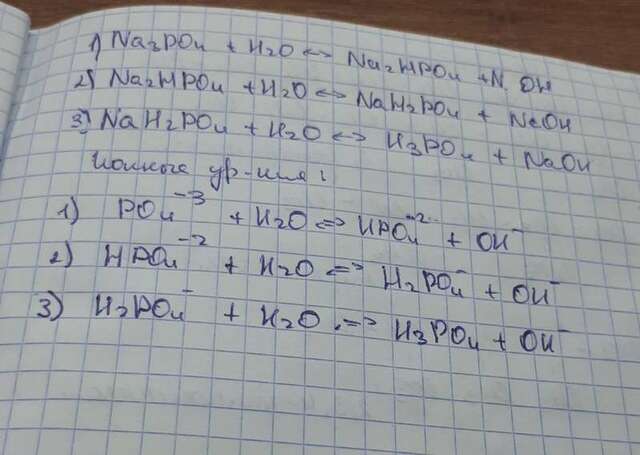 1) Na3PO4 + H2O <=> Na2HPO4 + N OH
2) Na2HPO4 + H2O <=> NaH2PO4 + NaOH
3) NaH2PO4 + H2O <=> H3PO4 + NaOH
Ионные ур-ния:
1) PO4⁻³ + H2O <=> HPO4⁻² + OH⁻
2) HPO4⁻² + H2O <=> H2PO4⁻ + OH⁻
3) H2PO4⁻ + H2O <=> H3PO4 + OH⁻